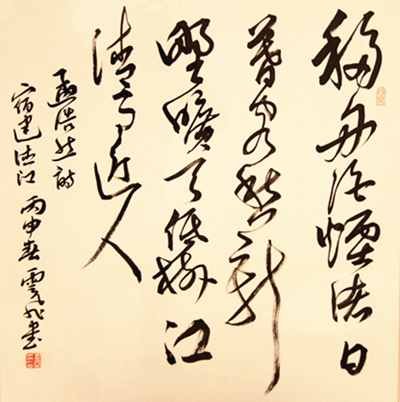 移舟泊煙渚日
暮客愁新
野曠天低樹江
清月近人
孟浩然詩
宿建德江 丙申春 雲飛書